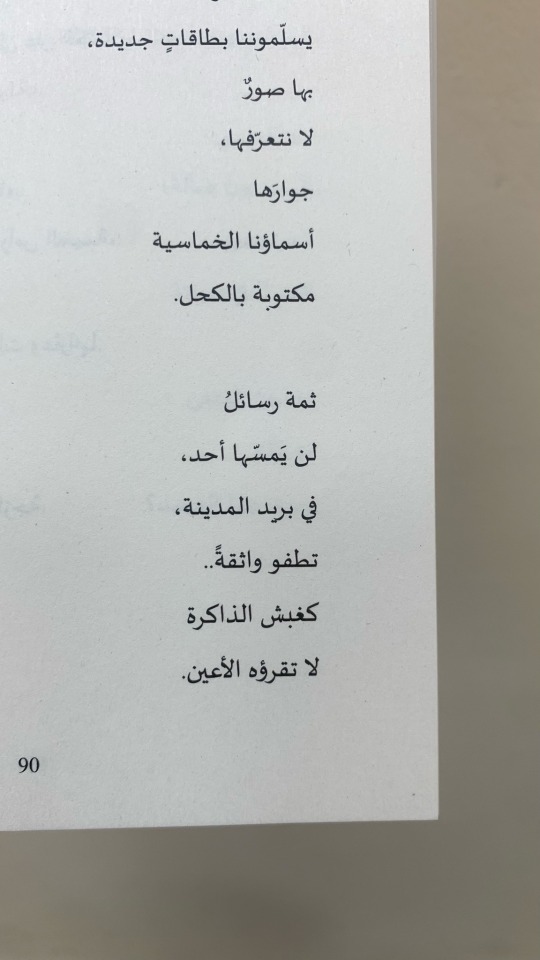 يسلّموننا بطاقاتٍ جديدة،
بها صورٌ
لا نتعرّفها،
جوارَها
أسماؤنا الخماسية
مكتوبة بالكحل.
ثمة رسائلُ
لن يَمسّها أحد،
في بريد المدينة،
تطفو واثقةً..
كغبش الذاكرة
لا تقرؤه الأعين.
90